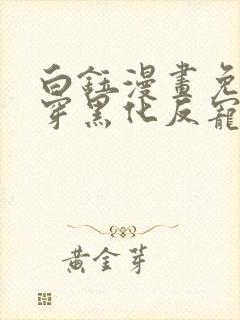 白鈺漫畫免
穿黑化反寵
黃金芽